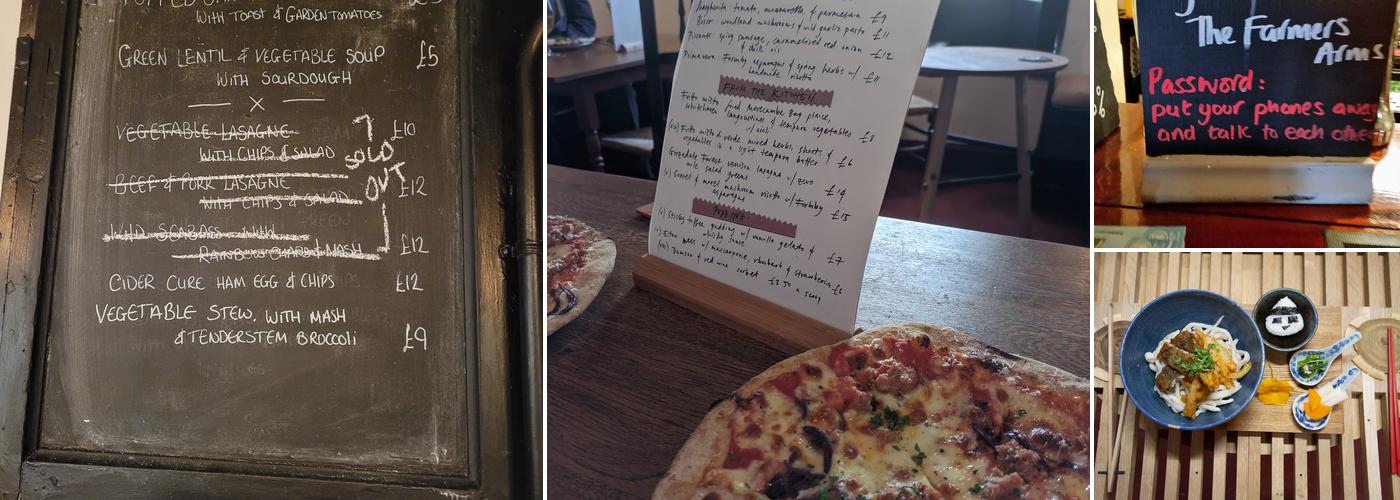 WITH TOAST & GARDEN TOMATOES
GREEN LENTIL & VEGETABLE SOUP £5
WITH SOURDOUGH
X
VEGETABLE LASAGNE £10
WITH CHIPS & SALAD
SOLD
OUT
BEEF & PORK LASAGNE £12
WITH CHIPS & SALAD
WILD SEABASS WITH
RAINBOW CHARD & MASH £12
CIDER CURE HAM EGG & CHIPS £12
VEGETABLE STEW, WITH MASH
& TENDERSTEM BROCCOLI £9
Margherita: tomato, mozzarella & parmesan £9
woodland mushrooms & wild garlic pesto £11
Piccante: spicy sausage, caramelised red onion
& chili oil £12
Primavera: Formby asparagus & spring herbs w/
handmade ricotta £11
FROM THE KITCHEN
Fritto misto: fried morecambe bay plaice,
whitebait, langoustines & tempura vegetables
w/ aioli £8
(vg) Fritto misto di verde, mixed herbs, shoots &
vegetables in a light tempura batter £6
Grizedale Forest venison lasagna w/
salad greens £14
(v) Sorrel & morel mushroom risotto w/ Formby
asparagus £13
PUDDING
(v) Sticky toffee pudding w/ vanilla gelato &
whisky sauce £7
(v) Eton mess w/ mascarpone, rhubarb & strawberries £6
(vg) Damson & red wine sorbet £2.50 a scoop
The Farmers
Arms
Password:
put your phones away
and talk to each other
%